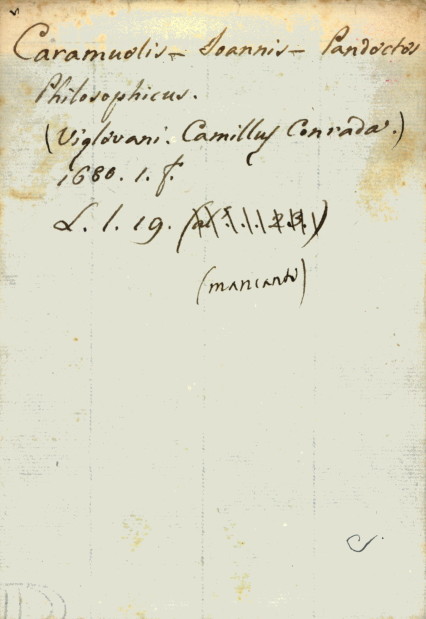 Caramuelis – Ioannis – Pandoctos
Philosophicus.
(Viglevani. Camillus Conrada.)
1680. 1. f.
L. 1. 19.
(mancante)